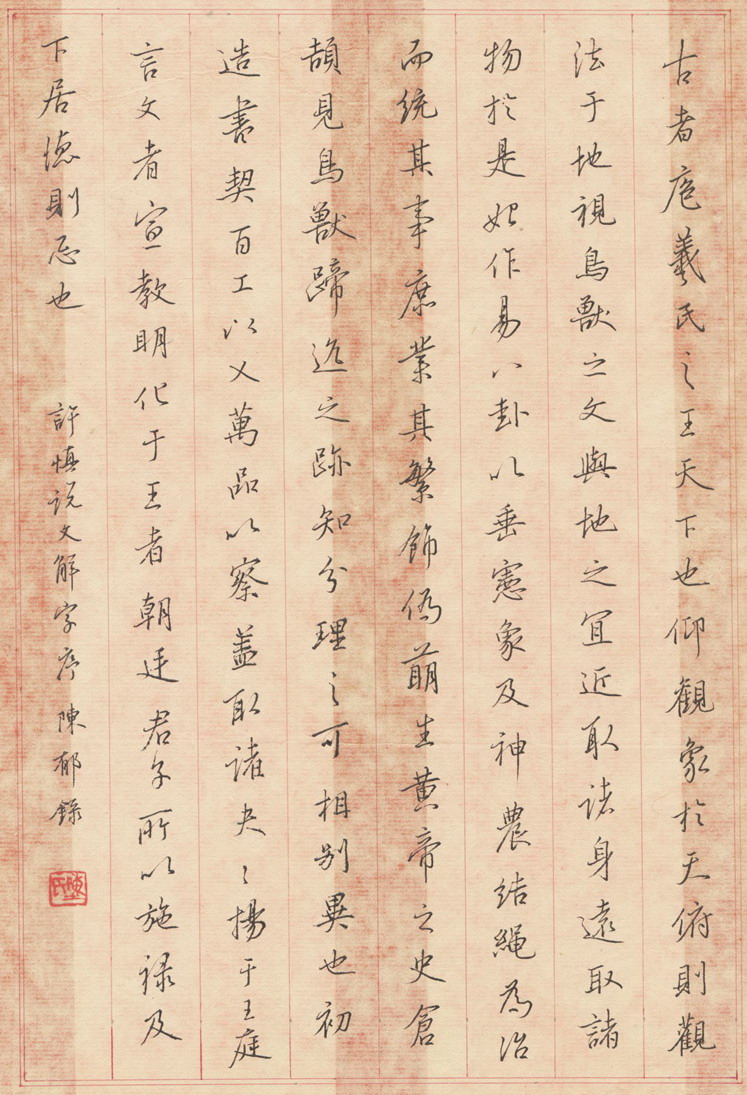 古者庖羲氏之王天下也仰觀象於天俯則觀
法于地視鳥獸之文與地之宜近取諸身遠取諸
物於是始作易八卦以垂憲象及神農結繩為治
而統其事庶業其繁飾偽萌生黃帝之史倉
頡見鳥獸蹄迒之跡知分理之可相別異也初
造書契百工以乂萬品以察蓋取諸夬夬揚于王庭
言文者宣教明化于王者朝廷君子所以施祿及
下居德則忌也
許慎説文解字序陳郁錄
陳氏